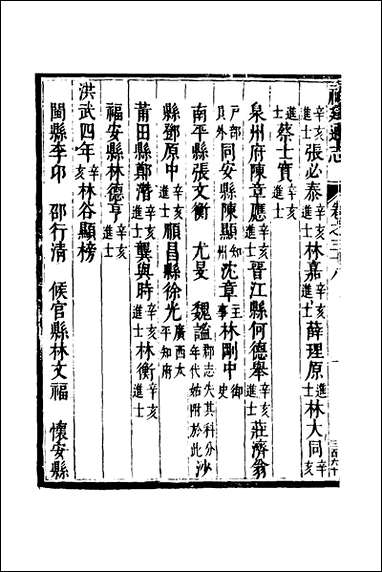 福建通志 卷之三十八
辛亥進士張必泰辛亥進士林嘉辛亥進士薛理原辛亥進士林大同辛亥
進士蔡士實辛亥進士
泉州府陳章應辛亥進士晉江縣何德舉辛亥進士莊濟翁
戶部員外同安縣陳顯知州沈章主事林剛中御史
南平縣張文衡 尤旻 魏謐郡志失其科分年代姑附於此沙
縣鄧原中辛亥進士順昌縣徐光廣西太平知府
莆田縣鄭潛辛亥進士龔與時辛亥進士林衡辛亥進士
福安縣林德亨辛亥進士
洪武四年辛亥林谷顯榜
閩縣李卬 邵行清 候官縣林文福 懷安縣